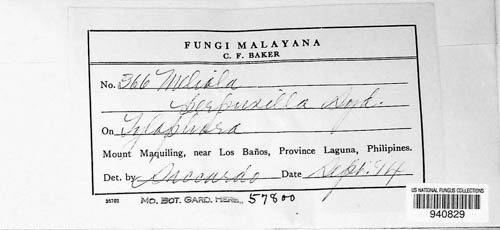 FUNGI MALAYANA
C. F. BAKER
No. 366 Meliola
perpusilla Syd.
On Tylophora
Mount Maquiling, near Los Baños, Province Laguna, Philipines.
Det. by Saccardo Date Sept. 14
56702 MO. BOT. GARD. HERB., 57800
US NATIONAL FUNGUS COLLECTIONS
940829